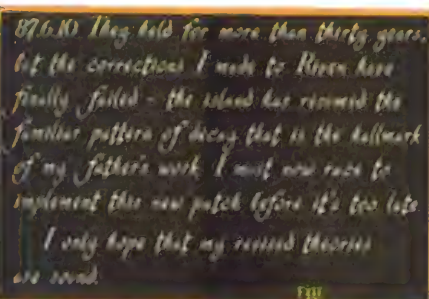 87.6.10 They held for more than thirty years,
but the corrections I made to Riven have
finally failed - the island has resumed the
familiar pattern of decay that is the hallmark
of my father's work. I must now race to
implement this new patch before it's too late.
I only hope that my revised theories
are sound.